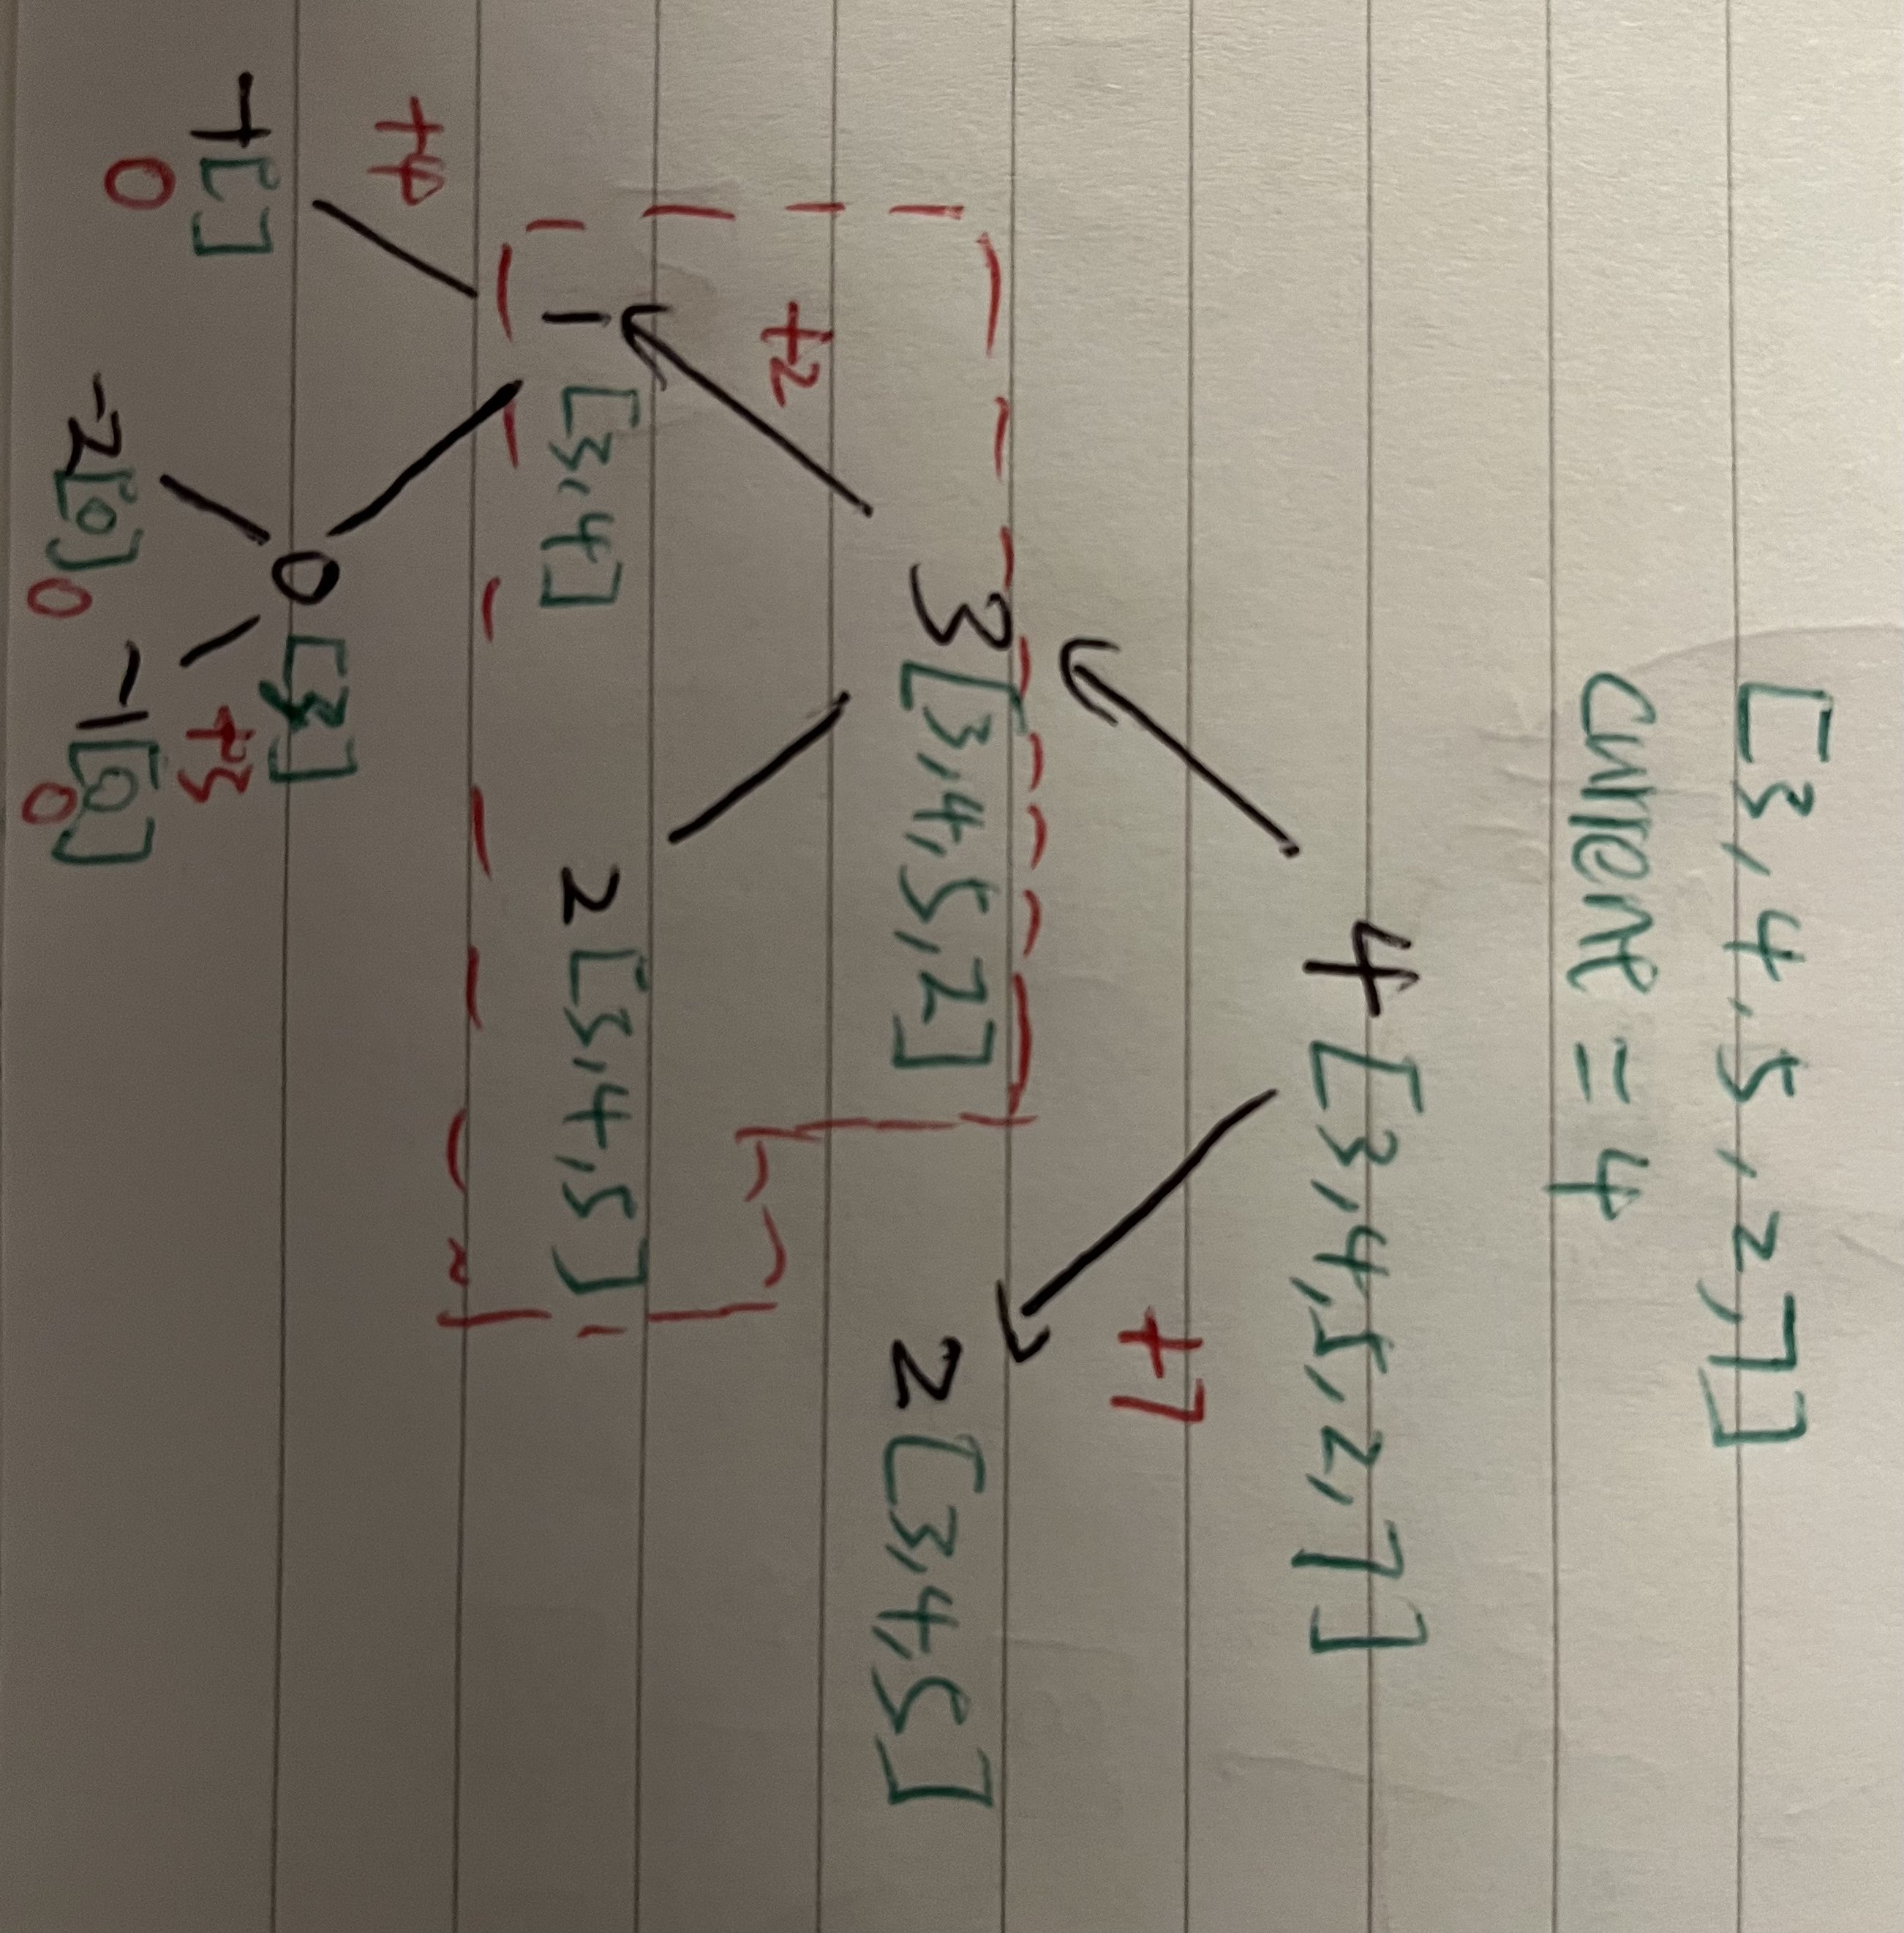 [3, 4, 5, 2, 7]
current = 4
4 [3, 4, 5, 2, 7]
+7
3 [3, 4, 5, 2]
2 [3, 4, 5]
+2
1 [3, 4]
2 [3, 4, 5]
+4
0 [3]
-1 []
+3
0
-2 [0] 0
-1 [0]
0